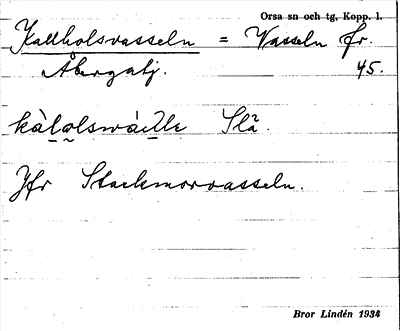 Orsa sn och tg. Kopp. l.
Kallholsvasseln = Vasseln fr.
Åbergatj. 45.
Slå
Jfr Stackmorvasseln.
Bror Lindén 1934